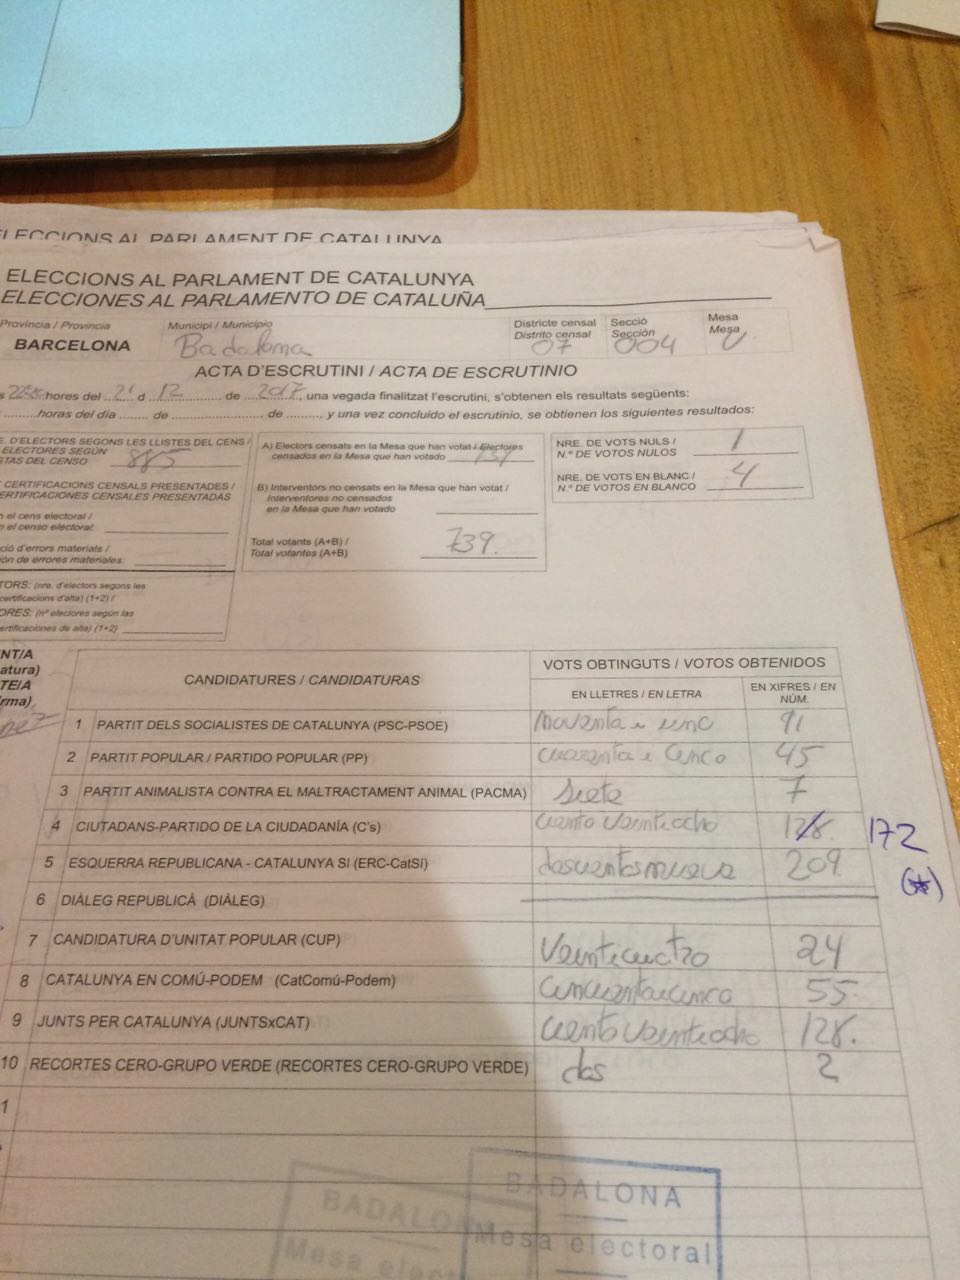 ELECCIONS AL PARLAMENT DE CATALUNYA
ELECCIONS AL PARLAMENT DE CATALUNYA
ELECCIONES AL PARLAMENTO DE CATALUÑA
Província / Provincia
Municipi / Municipio
Districte censal
Distrito censal
Secció
Sección
Mesa
Mesa
BARCELONA
Badalona
07
004
U
ACTA D'ESCRUTINI / ACTA DE ESCRUTINIO
hores del 21 d 12 de 2017, una vegada finalitzat l'escrutini, s'obtenen els resultats següents:
horas del día de de , y una vez concluido el escrutinio, se obtienen los siguientes resultados:
E. D'ELECTORS SEGONS LES LLISTES DEL CENS /
ELECTORES SEGÚN
STAS DEL CENSO 885
CERTIFICACIONS CENSALS PRESENTADES /
ERTIFICACIONES CENSALES PRESENTADAS
n el cens electoral /
n el censo electoral:
ció d'errors materials /
ión de errores materiales:
TORS: (nre. d'electors segons les
certificacions d'alta) (1+2) /
ORES: (nº electores según las
ertificaciones de alta) (1+2)
A) Electors censats en la Mesa que han votat / Electores
censados en la Mesa que han votado
B) Interventors no censats en la Mesa que han votat /
Interventores no censados
en la Mesa que han votado
Total votants (A+B) /
Total votantes (A+B) 739.
NRE. DE VOTS NULS /
N.º DE VOTOS NULOS 1
NRE. DE VOTS EN BLANC /
N.º DE VOTOS EN BLANCO 4
NT/A
atura)
TE/A
irma)
CANDIDATURES / CANDIDATURAS
VOTS OBTINGUTS / VOTOS OBTENIDOS
EN LLETRES / EN LETRA
EN XIFRES / EN NÚM.
1 PARTIT DELS SOCIALISTES DE CATALUNYA (PSC-PSOE) noventa i uno 91
2 PARTIT POPULAR / PARTIDO POPULAR (PP) cuarenta i cinco 45
3 PARTIT ANIMALISTA CONTRA EL MALTRACTAMENT ANIMAL (PACMA) siete 7
4 CIUTADANS-PARTIDO DE LA CIUDADANÍA (C's) ciento veintiocho 128. 172
5 ESQUERRA REPUBLICANA - CATALUNYA SI (ERC-CatSí) doscientos nueve 209 (*)
6 DIÀLEG REPUBLICÀ (DIÀLEG)
7 CANDIDATURA D'UNITAT POPULAR (CUP) Veinticuatro 24
8 CATALUNYA EN COMÚ-PODEM (CatComú-Podem) cincuentaicinco 55.
9 JUNTS PER CATALUNYA (JUNTSxCAT) ciento veintiocho 128.
10 RECORTES CERO-GRUPO VERDE (RECORTES CERO-GRUPO VERDE) dos 2
1
BADALONA
Mesa electoral
BADALON
Mesa elect